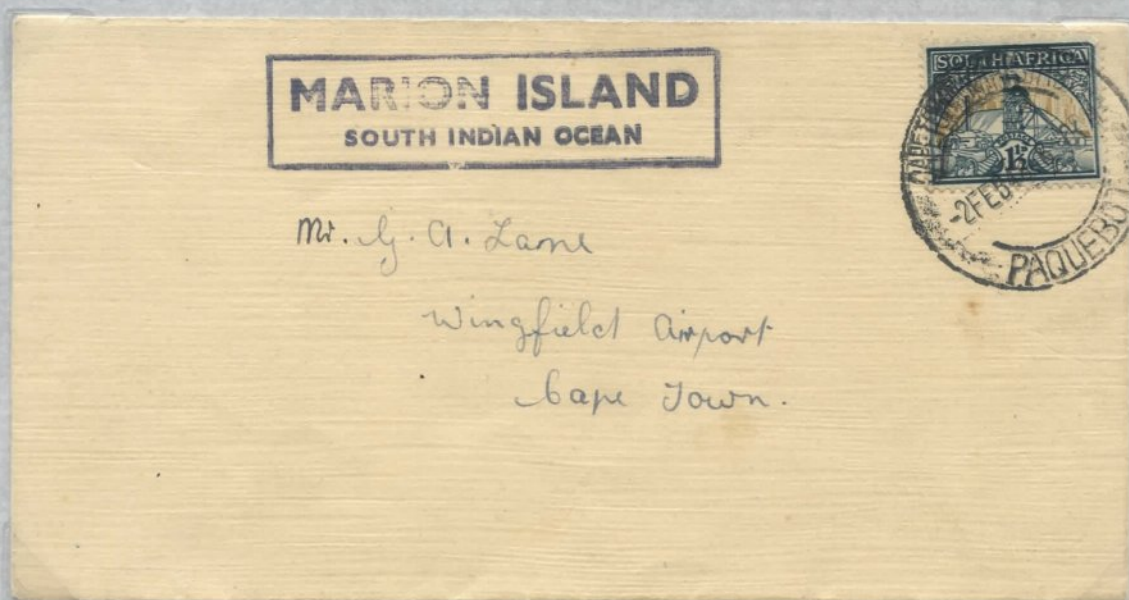 MARION ISLAND
SOUTH INDIAN OCEAN
SOUTH AFRICA
POSTAGE
1½
-2FEB
PAQUEBOT
Mr. G. A. Lane
Wingfield Airport
Cape Town.